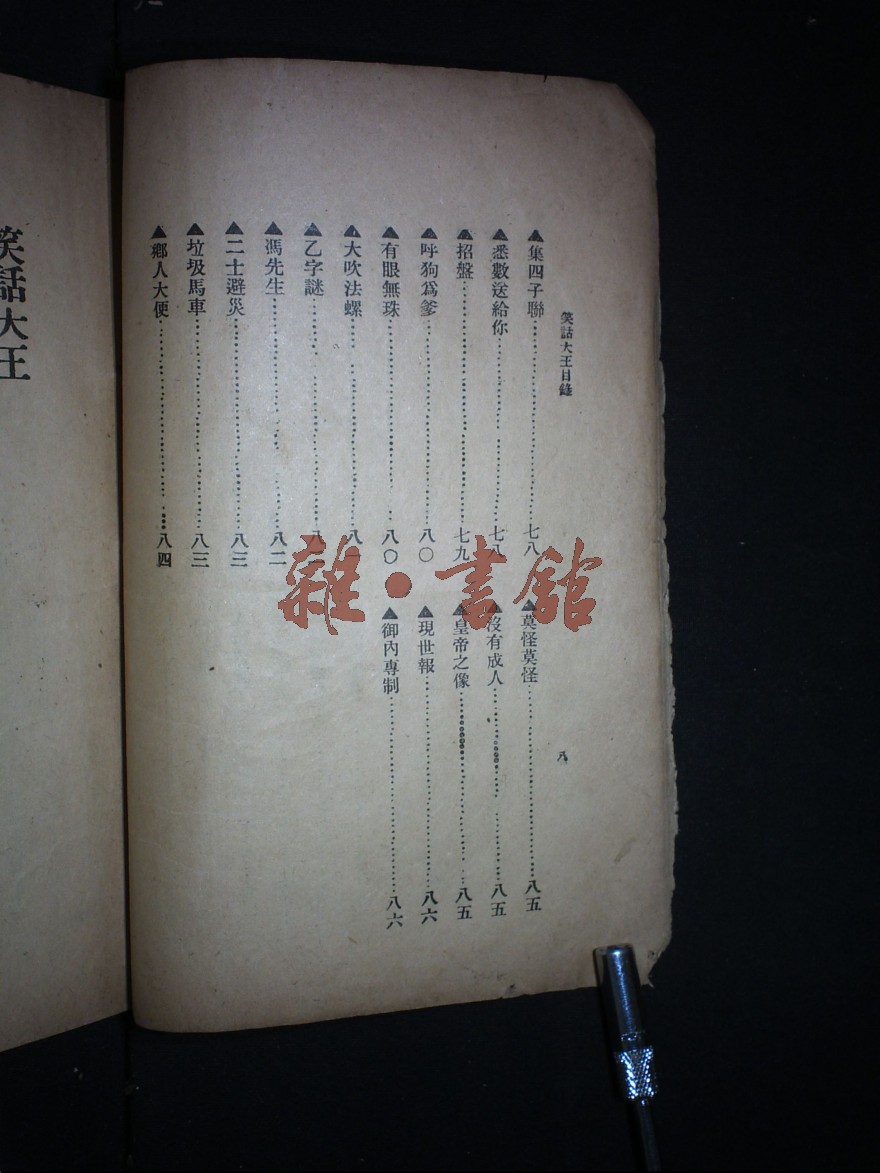 笑話大王目錄
▲集四子聯 七八
▲悉數送給你 七八
▲招盤 七九
▲呼狗爲爹 八〇
▲有眼無珠 八〇
▲大吹法螺 八一
▲乙字謎 八
▲馮先生 八二
▲二士避災 八三
▲垃圾馬車 八三
▲鄕人大便 八四
▲莫怪莫怪 八五
▲沒有成人 八五
▲皇帝之像 八五
▲現世報 八六
▲御內專制 八六
八
笑話大王
雜·書館